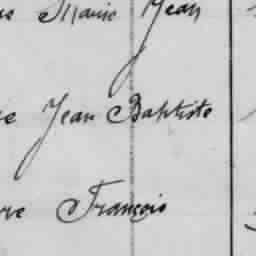 Marie Jean
Jean Baptiste
François